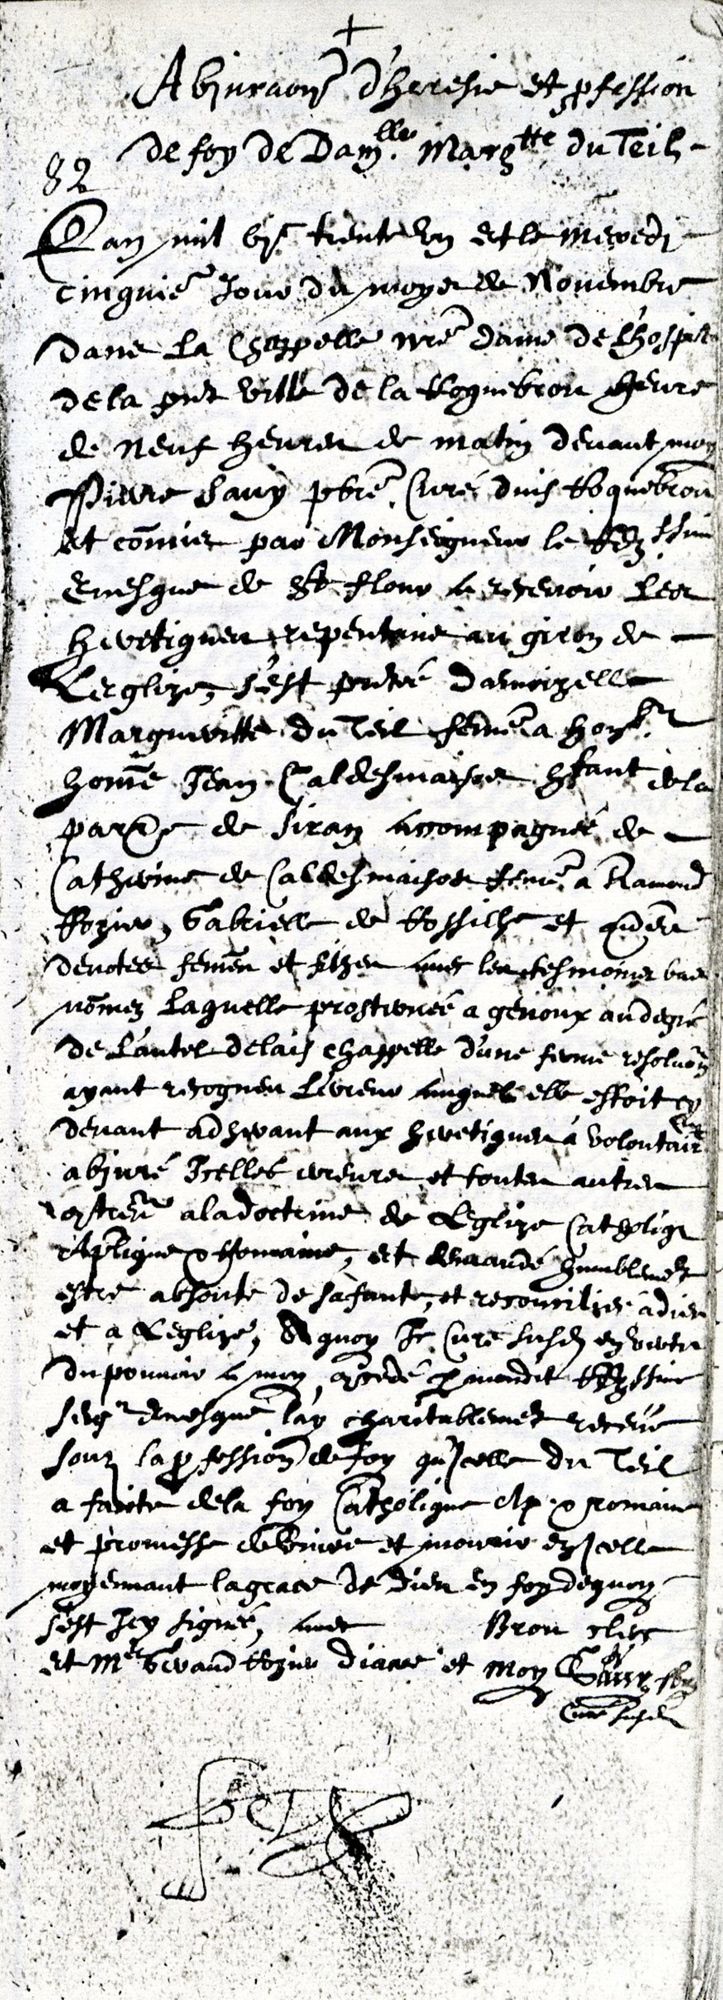 Abjuraon d'heresie et pfession
de foy de Dam.lle Margtte du Teil
82
L'an mil vjc trente un et le mecredi
cinquie jour du moys de Novembre
dans la chappelle nre dame de L'hospit
de la pnt ville de la Roquebrou heure
de neuf heures de matin devant moy
Pierre Sauy pbre curé dud Roquebrou
et comis par Monseigneur le
Evesque de St flour a recevoir les
heretiques repentans au giron de
L'esglize, s'est pntée damoizelle
Margueritte du Teil feme a hon.
home Jean Caldesmaisos hfant de la
parse de Siran accompagnée de
Catherine de Caldesmaisos feme a Ramond
Rozier, Gabrielle de Rossilhe et
devotes femes et filhes avec les tesmoins bas
nomez Laquelle prosternée a genoux au degré
de L'autel de lad chappelle d'une ferme resoluon
ayant recogneu L'erreur auquel elle estoit cy
devant adherant aux heretiques a volontairt
abjuré Icelles erreurs et toutes autres
a la doctrine de L'eglize Catholiq
Aplique & Romaine, et demandé humblement
estre absoute de sa faute, et reconcilier a dieu
et a L'eglize, A quoy Je Curé susd en vertu
du pouvoir a moy concedé p mondit
seigr evesque l'ay charitablemet receue
soubz la pfession de foy qu'Icelle du Teil
a faicte de la foy Catholique Ap. & romaine
et promesse de vivre et mourir en Icelle
moyennant la grace de dieu en foy de quoy
s'est Icy signée, avec Brou clerc
et Me Geraud Rozier diacre et moy Sauy pbr
Curé susd